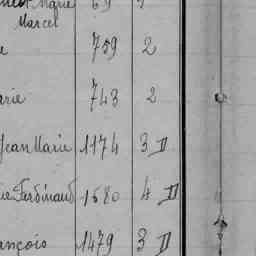 Marie 69
Marcel
e 759 2
arie 743 2
Jean Marie 1174 3 D
ie Ferdinand 1680 4 D
ançois 1479 3 D